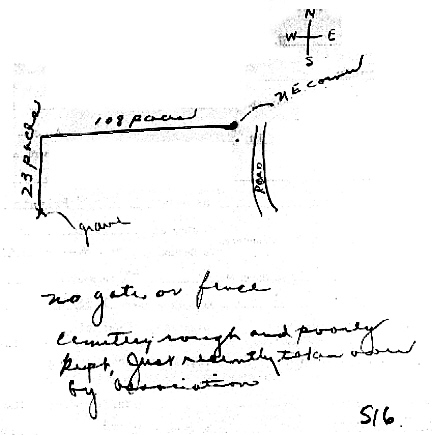 N
W E
S
NE corner
108 paces
23 paces
ROAD
grave
no gate or fence
Cemetery rough and poorly
kept, Just recently taken over
by association
S16